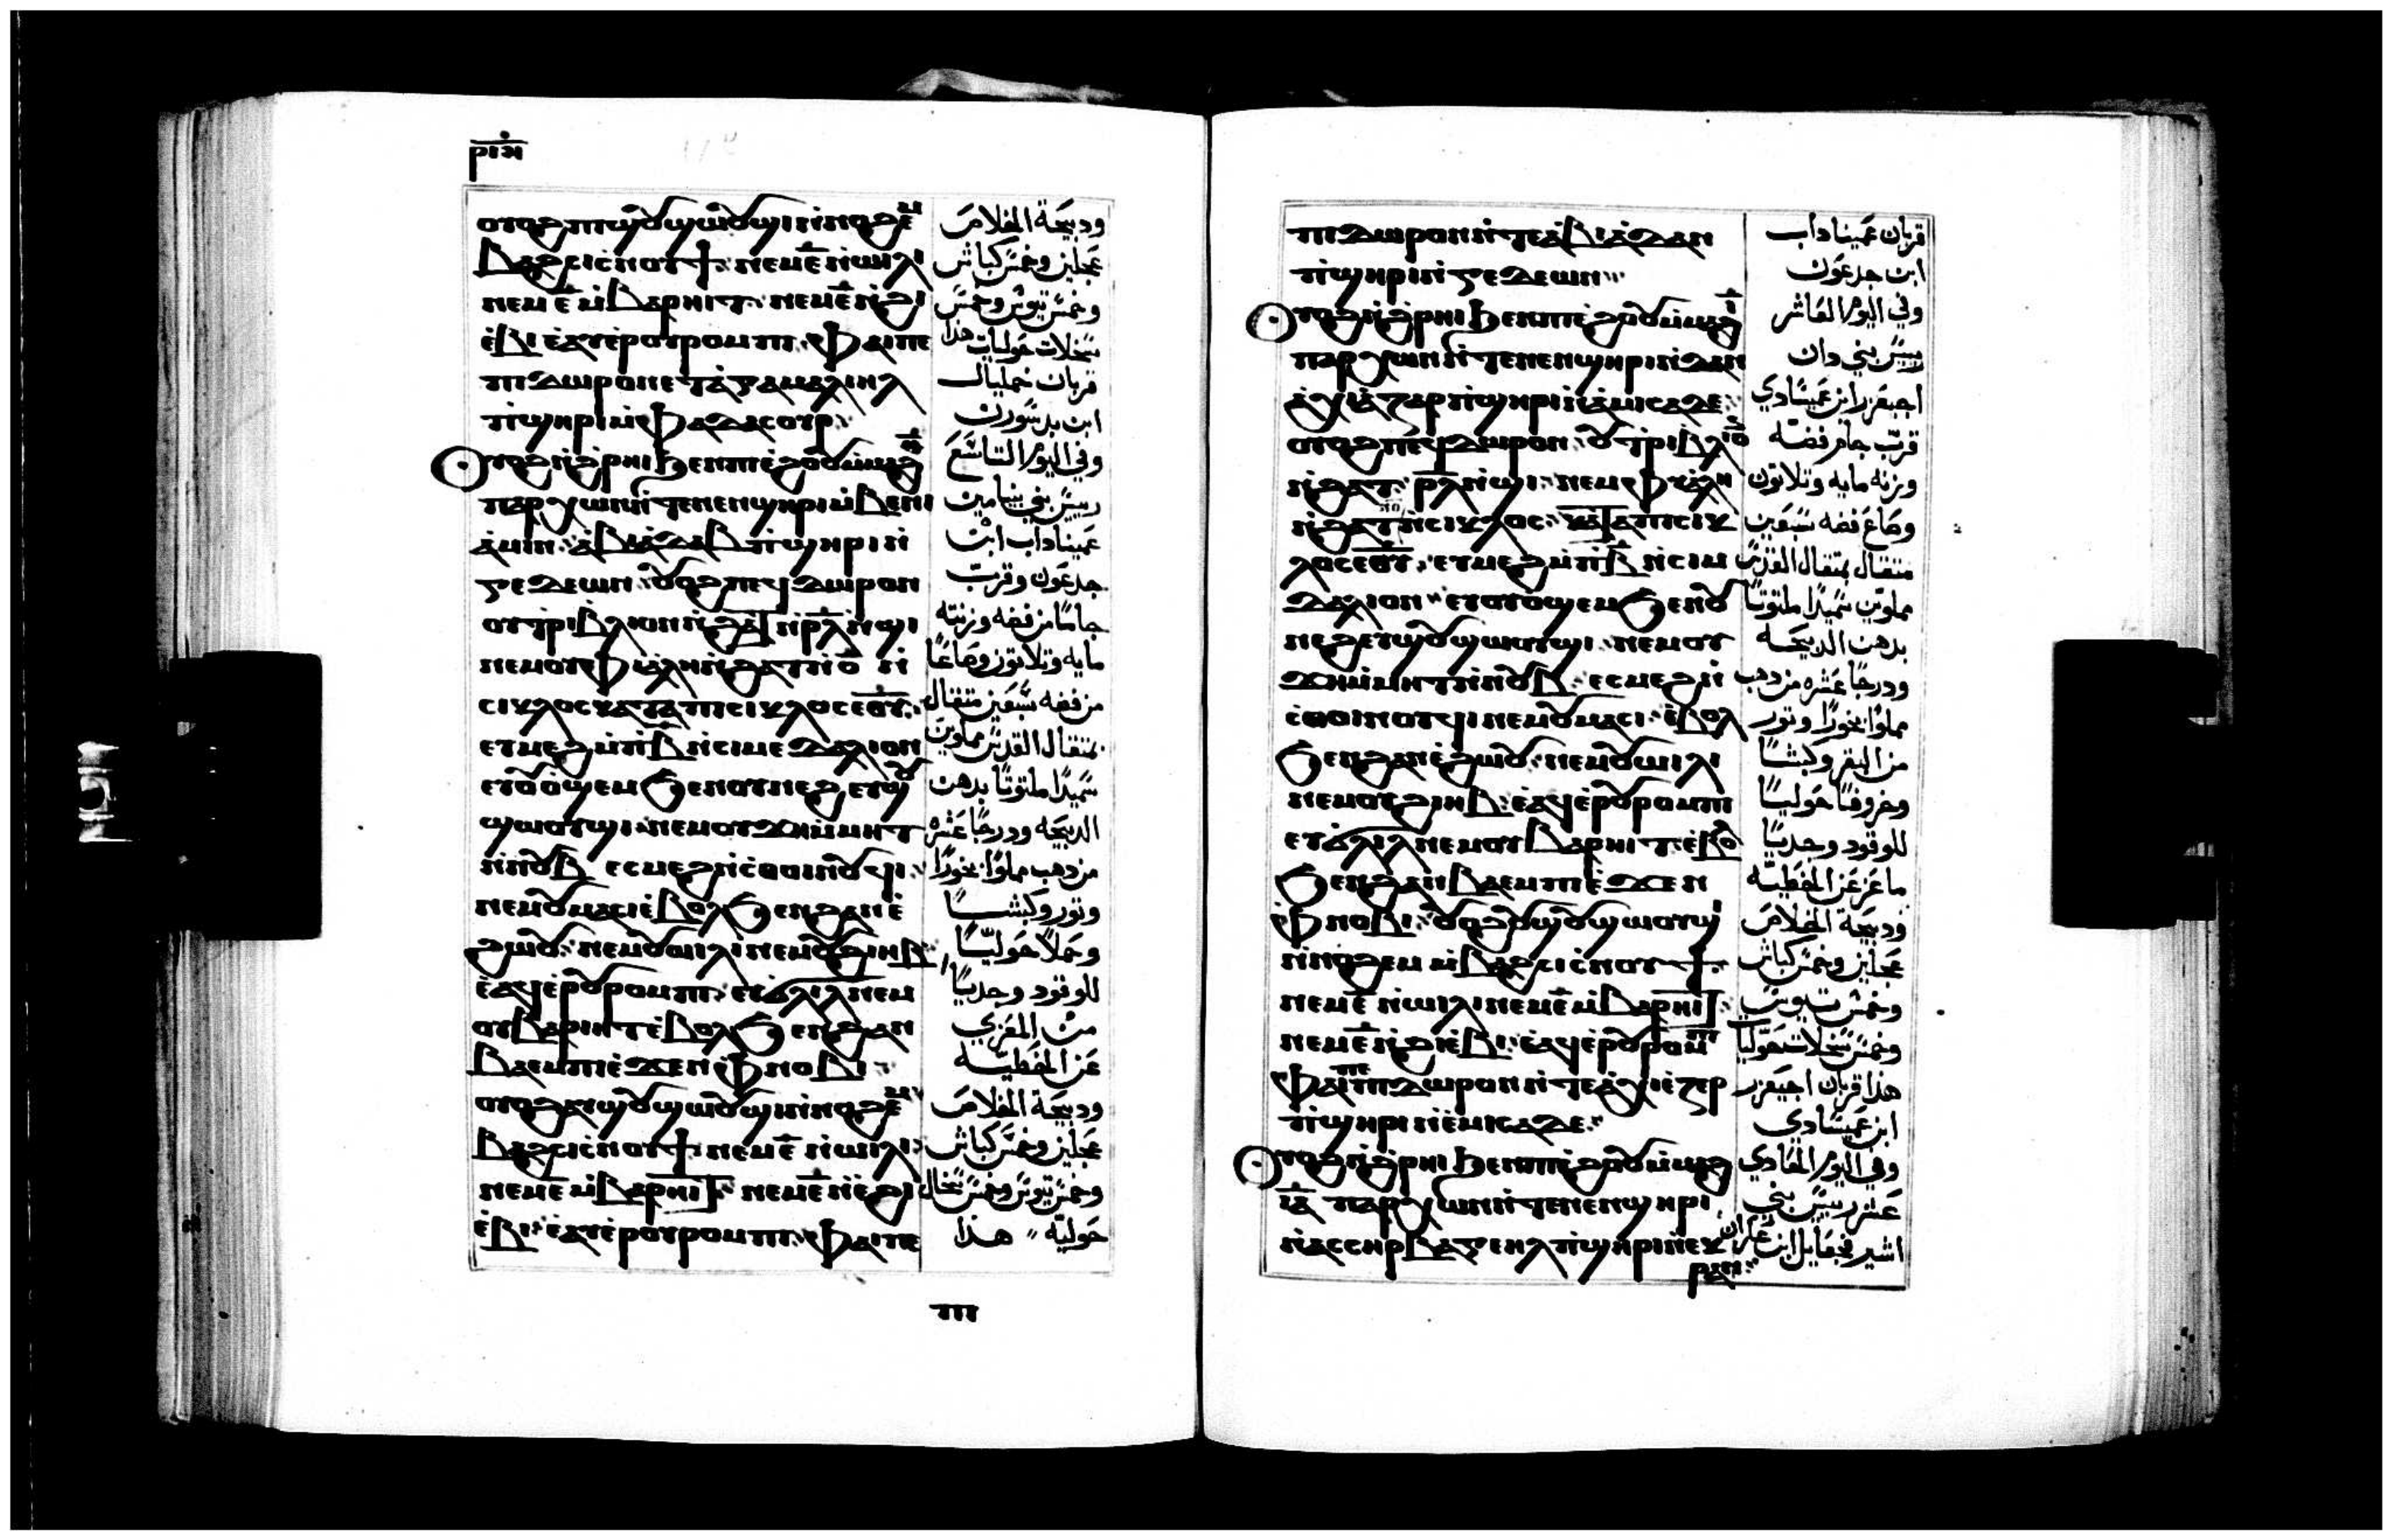 ⲣⲓⲁ
ⲟⲩⲟϩ ⲡⲓϣⲟⲩϣⲱⲟⲩϣⲓ ⲛ̀ⲛⲟϩⲉⲙ
ⲃⲁϩⲥⲓ ⲥ̀ⲛⲟⲩϯ ⲛⲉⲙ ⲉ̅ ⲛ̀ⲱⲓⲗⲓ
ⲛⲉⲙ ⲉ̅ ⲙ̀ⲃⲁⲣⲏⲓⲧ ⲛⲉⲙ ⲉ̅ ⲛ̀ϩⲓ
ⲉ̀ⲃⲓ ⲉ̀ⲁⲩⲉⲣⲟⲩⲣⲟⲙⲡⲓ ⲫⲁⲓ ⲡⲉ
ⲡⲓⲇⲱⲣⲟⲛ ⲉⲧⲁ ⲅⲁⲙⲁⲗⲓⲏⲗ
ⲡ̀ϣⲏⲣⲓ ⲙ̀ⲫⲁⲇⲁⲥⲟⲩⲣ
ⲟⲩⲟϩ ⲛ̀ϩ̀ⲣⲏⲓ ϧⲉⲛ ⲡⲓⲉ̀ϩⲟⲟⲩ ⲙ̀ⲙⲁϩ ⲑ̅
ⲡⲁⲣⲭⲱⲛ ⲛ̀ⲧⲉ ⲛⲉⲛϣⲏⲣⲓ ⲙ̀ⲃⲉⲛⲓ
ⲁⲙⲓⲛ ⲁⲃⲓⲇⲁⲃ ⲡ̀ϣⲏⲣⲓ ⲛ̀
ⲅⲉⲇⲉⲱⲛ ⲟⲩⲟϩ ⲡⲉϥⲇⲱⲣⲟⲛ
ⲟⲩⲧⲣⲓⲃⲗⲓⲟⲛ ⲛ̀ϩⲁⲧ ⲛ̀ⲣ̅ⲗ̅ ⲛ̀ϣⲓ
ⲛⲉⲙ ⲟⲩⲫⲓⲁⲗⲏ ⲛ̀ϩⲁⲧ ⲡⲓⲟ̅ ⲛ̀
ⲥⲓⲕⲗⲟⲥ ⲕⲁⲧⲁ ⲡⲓⲥⲓⲕⲗⲟⲥ ⲉⲑⲩ̅
ⲉⲩⲙⲉϩ ⲙ̀ⲡⲃ̅ ⲛ̀ⲥⲓⲙⲉⲇⲁⲗⲓⲟⲛ
ⲉⲩⲟⲩⲟϣⲉⲙ ϧⲉⲛ ⲟⲩⲛⲉϩ ⲉⲩϣⲟⲩ
ϣⲱⲟⲩϣⲓ ⲛⲉⲙ ⲟⲩϫⲏ ⲙ̀ⲙⲏⲧ
ⲛ̀ⲛⲟⲩⲃ ⲉⲥⲙⲉϩ ⲛ̀ⲥ̀ⲑⲟⲓⲛⲟⲩϥⲓ
ⲛⲉⲙ ⲟⲩⲙⲁⲥⲓ ⲉ̀ⲃⲟⲗ ϧⲉⲛ ϩⲁⲛⲉ̀
ϩⲱⲟⲩ ⲛⲉⲙ ⲟⲩⲱⲓⲗⲓ ⲛⲉⲙ ⲟⲩϩⲓⲏⲃ
ⲉ̀ⲁϥⲉⲣⲟⲩⲣⲟⲙⲡⲓ ⲉⲩϭⲗⲓⲗ ⲛⲉⲙ
ⲟⲩⲃⲁⲣⲓⲏⲧ ⲉ̀ⲃⲟⲗ ϧⲉⲛ ϩⲁⲛ
ⲃⲁⲉⲙⲡⲓ ⲉ̀ϫⲉⲛ ⲫ̀ⲛⲟⲃⲓ
ⲟⲩⲟϩ ⲟⲩϣⲟⲩϣⲱⲟⲩϣⲓ ⲛ̀ⲛⲟϩⲉⲙ
ⲃⲁϩⲥⲓ ⲥ̀ⲛⲟⲩϯ ⲛⲉⲙ ⲉ̅ ⲛ̀ⲱⲓⲗⲓ
ⲛⲉⲙ ⲉ̅ ⲙ̀ⲃⲁⲣⲏⲓⲧ ⲛⲉⲙ ⲉ̅ ⲛ̀ϩⲓ
ⲉ̀ⲃⲓ ⲉ̀ⲁⲩⲉⲣⲟⲩⲣⲟⲙⲡⲓ ⲫⲁⲓ ⲡⲉ
وديحة الخلاص
عجلين وخمس كباش
وخمس تيوس وخمس
سخلات حوليات هذا
قربان جمليال
ابن بدسورن
وفي اليوم التاسع
رييس بني بنيامين
عميناداب ابن
جدعون وقرب
جاما من فضه وزنته
مايه وتلاتون وصاعا
من فضه سبعين متقال
بمتقال القدس مملوين
سميدا ملتوتا بدهن
الدبيحه ودرجا عشره
من دهب مملوا بخورا
وتور وكبشا
وحملا حوليا
للوقود وجديا
من المعزي
عن الخطيه
وديحة الخلاص
عجلين وخمس كباش
وخمس تيوس وخمس سخال
حوليه هذا
ⲡⲓⲇⲱⲣⲟⲛ ⲛ̀ⲧⲉ ⲁⲃⲓⲁⲇⲁⲛ
ⲡ̀ϣⲏⲣⲓ ⲛ̀ⲅⲉⲇⲉⲱⲛ
ⲟⲩⲟϩ ⲛ̀ϩ̀ⲣⲏⲓ ϧⲉⲛ ⲡⲓⲉ̀ϩⲟⲟⲩ ⲙ̀ⲙⲁϩ ⲓ̅
ⲡⲁⲣⲭⲱⲛ ⲛ̀ⲧⲉ ⲛⲉⲛϣⲏⲣⲓ ⲛ̀ⲇⲁⲛ
ⲁⲭⲓⲁⲍⲁⲣ ⲡ̀ϣⲏⲣⲓ ⲛ̀ⲁⲙⲓⲥⲁⲇⲉ
ⲟⲩⲟϩ ⲡⲉϥⲇⲱⲣⲟⲛ ⲟⲩⲧⲣⲓⲃⲗⲓⲟⲛ
ⲛ̀ϩⲁⲧ ⲣ̅ⲗ̅ ⲛ̀ϣⲓ ⲛⲉⲙ ⲫⲓⲁⲗⲏ
ⲛ̀ϩⲁⲧ ⲛ̀ⲥⲓⲕⲗⲟⲥ ⲕⲁⲧⲁ ⲡⲓⲥⲓⲕ
ⲗⲟⲥ ⲉⲑⲩ̅ ⲉⲩⲙⲉϩ ⲙ̀ⲡⲃ̅ ⲛ̀ⲥⲓⲙ
ⲇⲁⲗⲓⲟⲛ ⲉⲩⲟⲩⲟϣⲉⲙ ϧⲉⲛ ⲟⲩ
ⲛⲉϩ ⲉⲩϣⲟⲩϣⲱⲟⲩϣⲓ ⲛⲉⲙ ⲟⲩ
ϫⲏ ⲙ̀ⲙⲏⲧ ⲛ̀ⲛⲟⲩⲃ ⲉⲥⲙⲉϩ ⲛ̀
ⲥ̀ⲑⲟⲓⲛⲟⲩϥⲓ ⲛⲉⲙ ⲟⲩⲙⲁⲥⲓ ⲉ̀ⲃⲟⲗ
ϧⲉⲛ ϩⲁⲛⲉ̀ϩⲱⲟⲩ ⲛⲉⲙ ⲟⲩⲱⲓⲗⲓ
ⲛⲉⲙ ⲟⲩϩⲓⲏⲃ ⲉ̀ⲁϥⲉⲣⲟⲩⲣⲟⲙⲡⲓ
ⲉⲩϭⲗⲓⲗ ⲛⲉⲙ ⲟⲩⲃⲁⲣⲏⲓⲧ ⲉ̀ⲃⲟⲗ
ϧⲉⲛ ϩⲁⲛⲃⲁⲉⲙⲡⲓ ⲉ̀ϫⲉⲛ
ⲫ̀ⲛⲟⲃⲓ ⲟⲩⲟϩ ⲟⲩϣⲟⲩϣⲱⲟⲩϣⲓ
ⲛ̀ⲛⲟϩⲉⲙ ⲙ̀ⲃⲁϩⲥⲓ ⲥ̀ⲛⲟⲩϯ
ⲛⲉⲙ ⲉ̅ ⲛ̀ⲱⲓⲗⲓ ⲛⲉⲙ ⲉ̅ ⲙ̀ⲃⲁⲣⲏⲓⲧ
ⲛⲉⲙ ⲉ̅ ⲛ̀ϩⲓⲉ̀ⲃⲓ ⲉ̀ⲁϥⲉⲣⲟⲩⲣⲟⲙⲡⲓ
ⲫⲁⲓ ⲡⲉ ⲡⲓⲇⲱⲣⲟⲛ ⲛ̀ⲧⲉ ⲁⲭⲓⲉⲍⲉⲣ
ⲡ̀ϣⲏⲣⲓ ⲛ̀ⲉⲙⲓⲥⲁⲇⲉ
ⲟⲩⲟϩ ⲛ̀ϩ̀ⲣⲏⲓ ϧⲉⲛ ⲡⲓⲉ̀ϩⲟⲟⲩ ⲙ̀ⲙⲁϩ
ⲓ̅ⲁ̅ ⲡⲁⲣⲭⲱⲛ ⲛ̀ⲧⲉ ⲛⲉⲛϣⲏⲣⲓ
ⲛ̀ⲁⲥⲥⲏⲣ ⲃⲁⲅⲉⲏⲗ ⲡ̀ϣⲏⲣⲓ ⲛ̀ⲉⲭ
ⲣⲁⲛ
قربان عميناداب
ابن جدعون
وفي اليوم العاشر
رييس بني دان
اجيعزر ابن عميسادي
قرب جام فضه
وزنه مايه وتلاتون
وصاع فضه سبعين
متقال بمتقال القدس
مملوين سميدا ملتوتا
بدهن الدبيحه
ودرجا عشره من دهب
مملوا بخورا وتور
من البقر وكبشا
وخروفا حوليا
للوقود وجديا
ماعز عن الخطيه
وديحة الخلاص
عجلين وخمس كباش
وخمس تيوس
وخمس سخلات حوليا
هذا قربان اجيعزر
ابن عميسادي
وفي اليوم الحادي
عشر رييس بني
اشير فجعايل ابن عكران